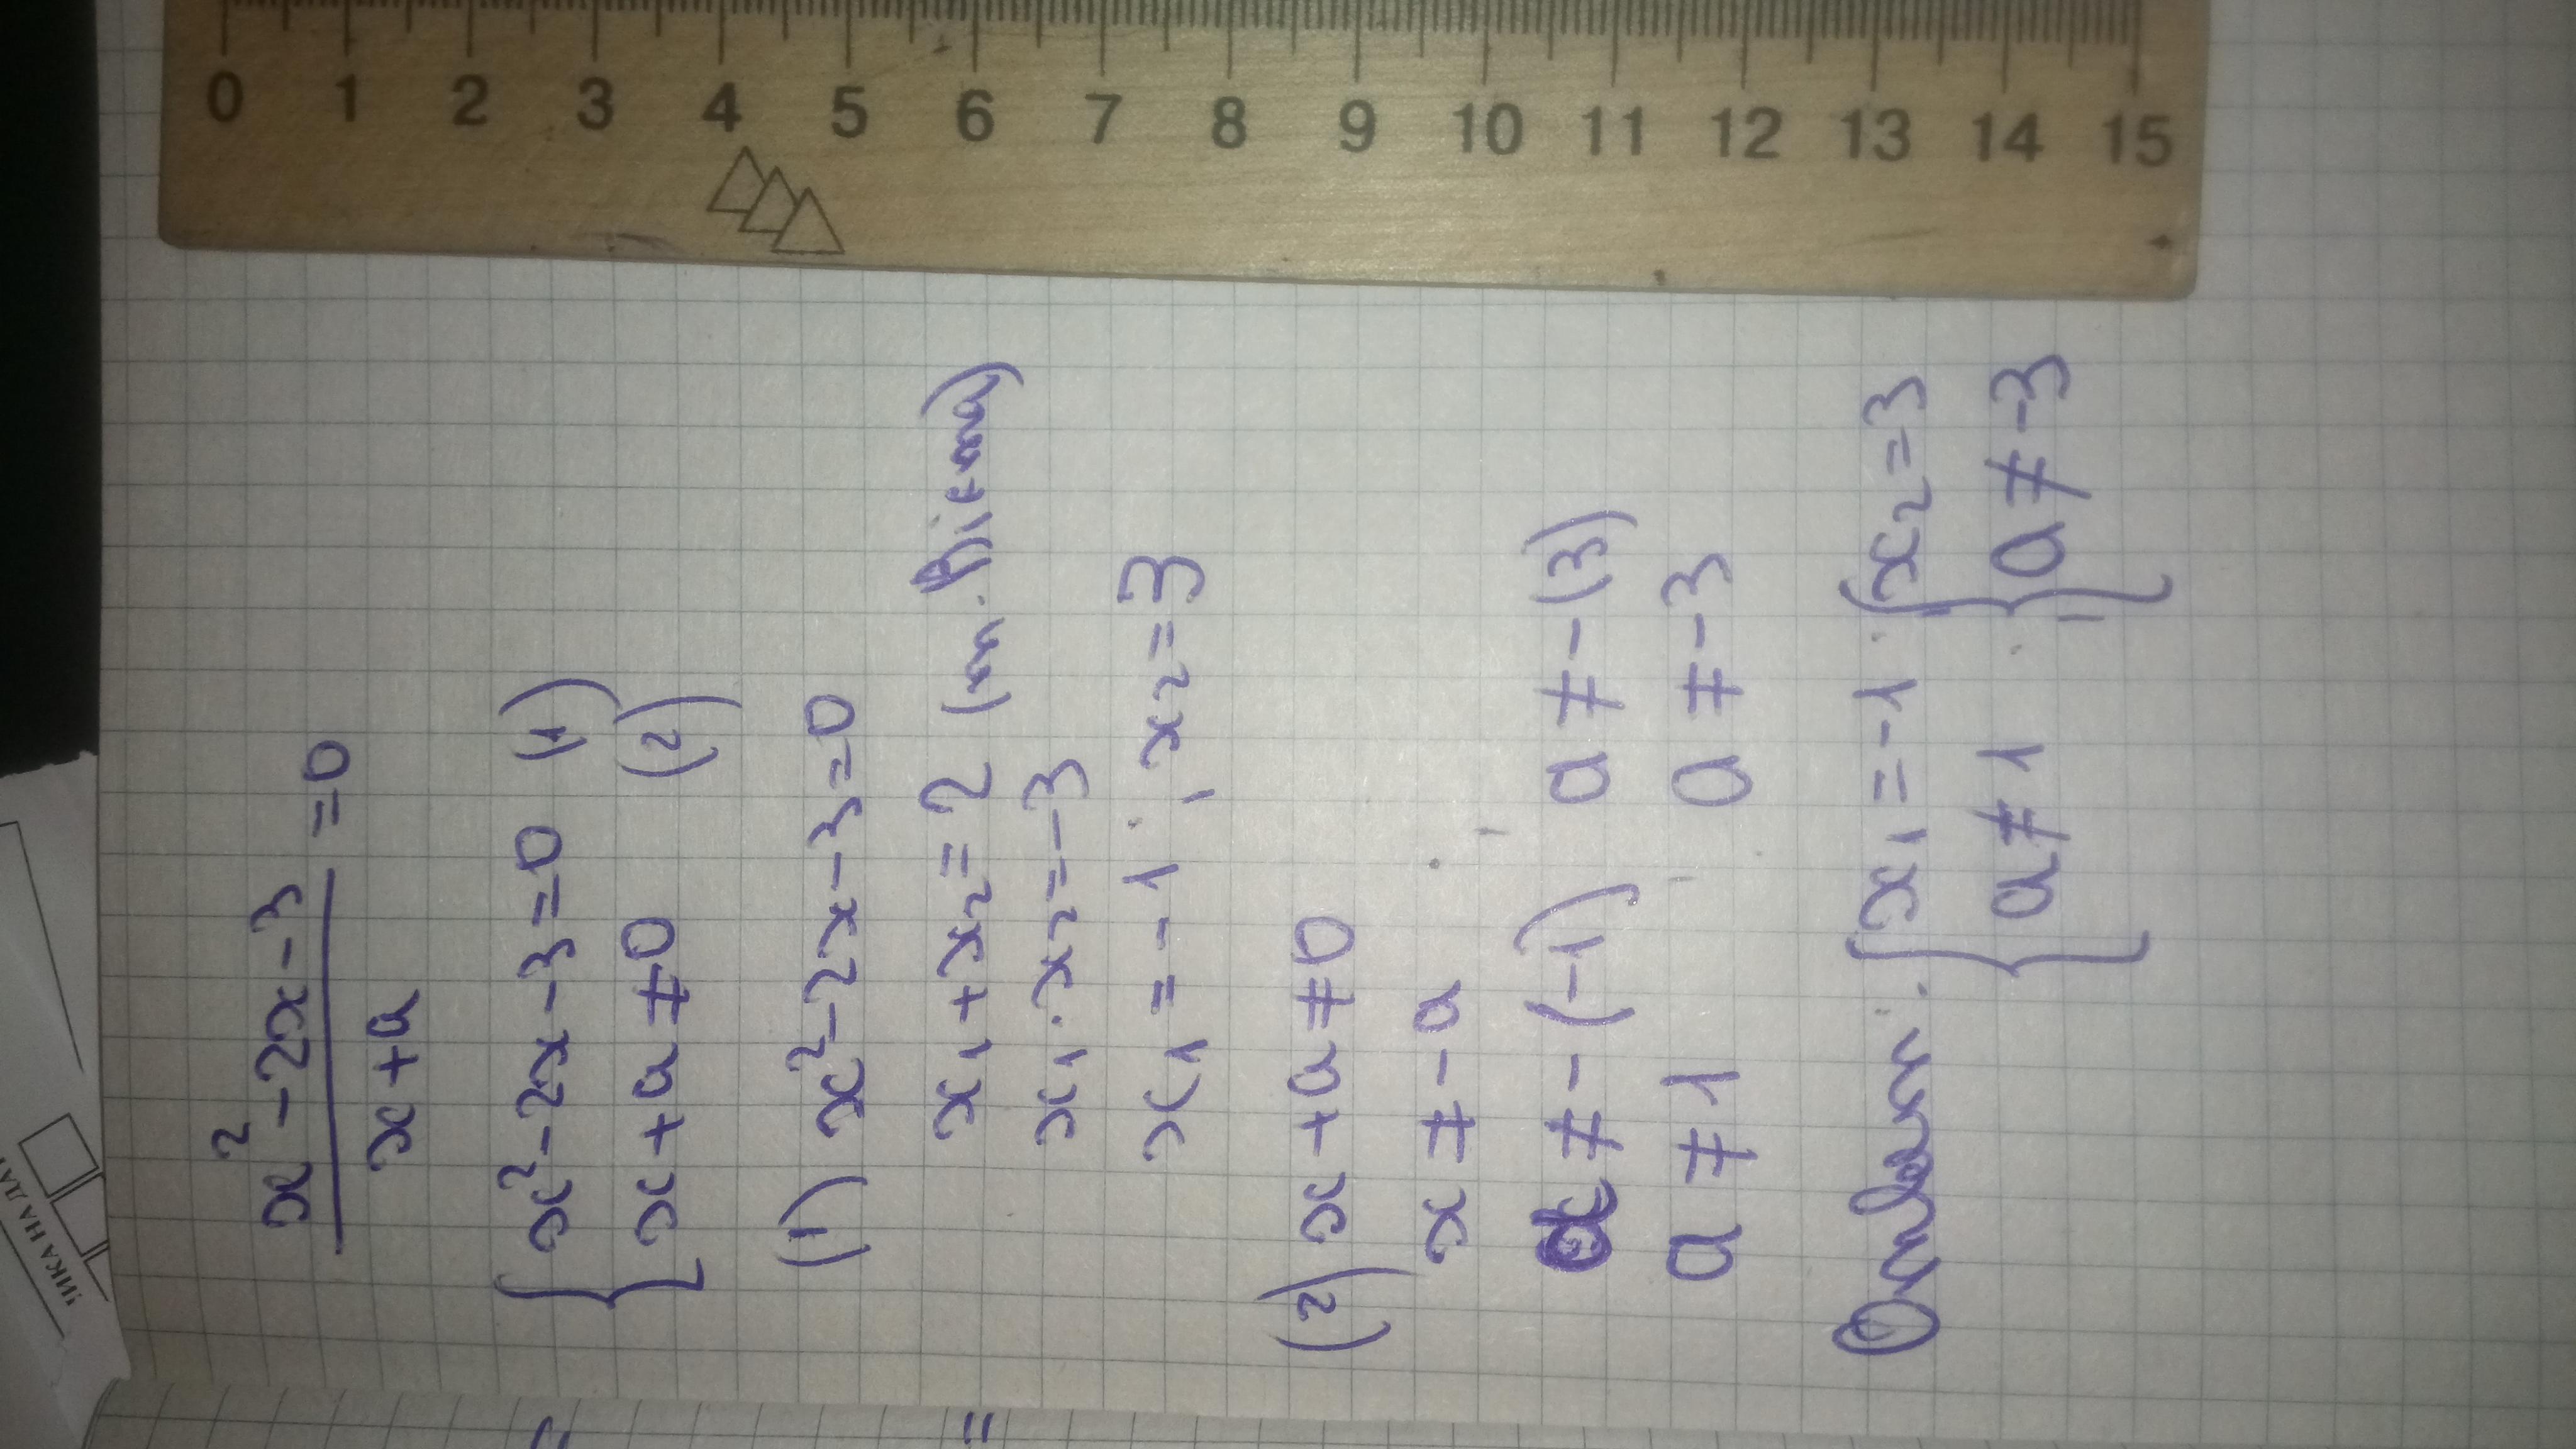 0 1 2 3 4 5 6 7 8 9 10 11 12 13 14 15
ИКА НА
x² - 2x - 3 = 0
x + a
{ x² - 2x - 3 = 0 (1)
x + a ≠ 0 (2)
(1) x² - 2x - 3 = 0
x₁ + x₂ = 2 (т. Вієта)
x₁ · x₂ = -3
x₁ = -1 , x₂ = 3
(2) x + a ≠ 0
x ≠ -a
a ≠ -(-1) a ≠ -(3)
a ≠ 1 a ≠ -3
{ x₁ = -1 { x₂ = 3
a ≠ 1 ; a ≠ -3